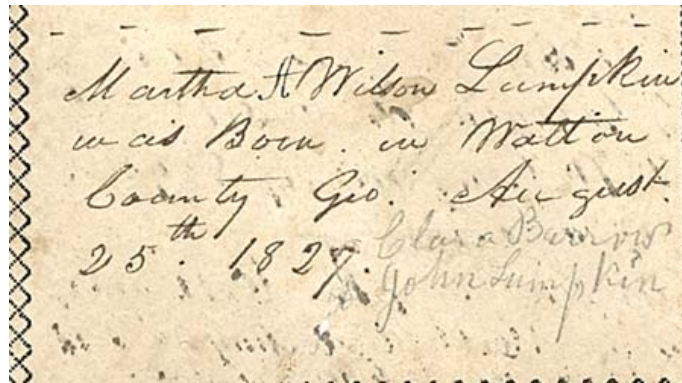 Martha A Wilson Lumpkin
was Born in Walton
County Geo. August
25th. 1827.
Clara Barrow
John Lumpkin